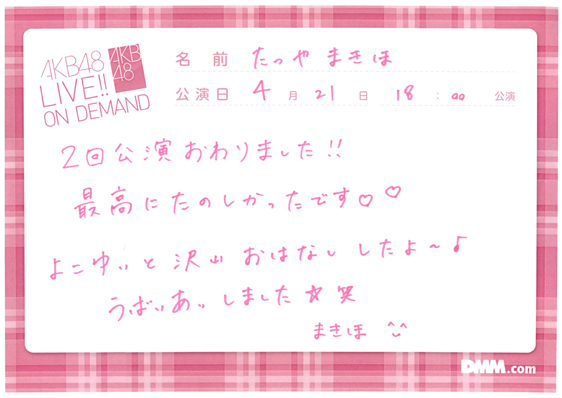 AKB48
LIVE!!
ON DEMAND
AKB
48
名前 たつや まきほ
公演日 4月21日 18:00 公演
2回公演おわりました!!
最高にたのしかったです♡♡
よこゆいと沢山おはなししたよ〜♪
うばいあいしました☆笑
まきほ ^^
DMM.com